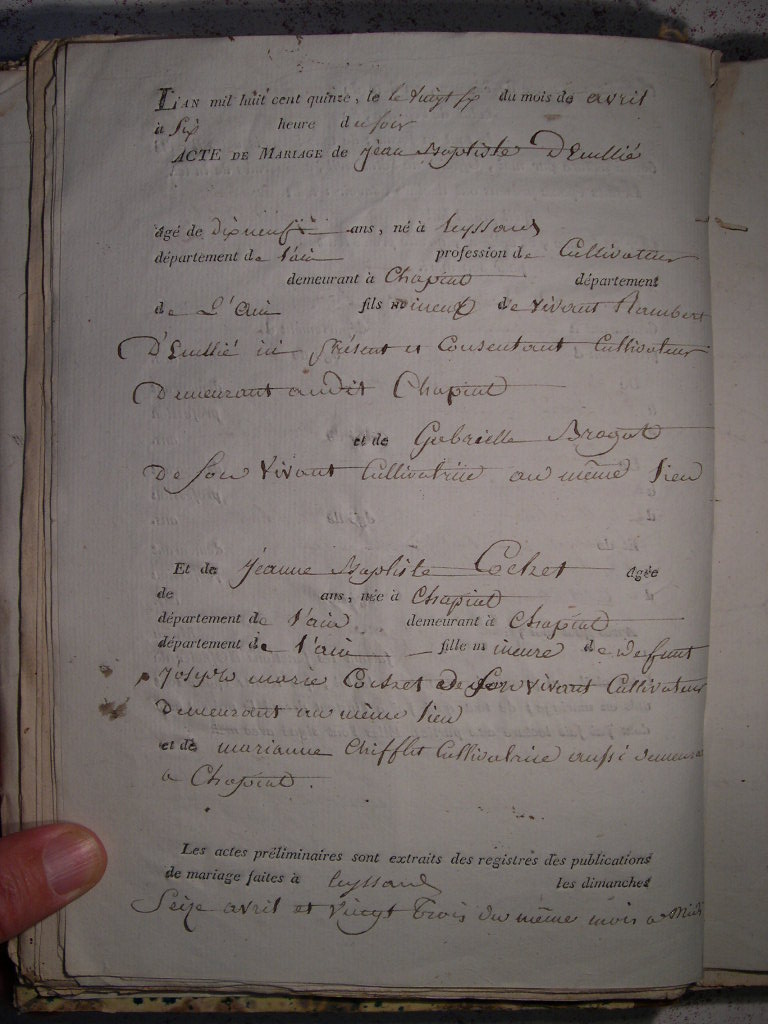 L'AN mil huit cent quinze, le le vingt six du mois de avril
à Six heure du soir
ACTE DE MARIAGE de jean Baptiste D'Emillié
âgé de dix neuf ans, né à leyssard
département de l'ain profession de Cultivateur
demeurant à Chapiat département
de L'Ain fils mineur de vivant Rambert
D'Emillié ici présent et Consentant Cultivateur
Demeurant audit Chapiat
et de Gabrielle Brogat
De son vivant Cultivatrice au même lieu
Et de jeanne Baptiste Cochet agée
de ans, née à Chapiat
département de l'ain demeurant à Chapiat
département de l'ain fille mineure de defunt
joseph marie Cochet de son vivant Cultivateur
Demeurant au même lieu
et de marianne Chifflet Cultivatrice aussi demeura
a Chapiat.
Les actes préliminaires sont extraits des registres des publications
de mariage faites à leyssard les dimanches
Seize avril et vingt trois du même mois a midi